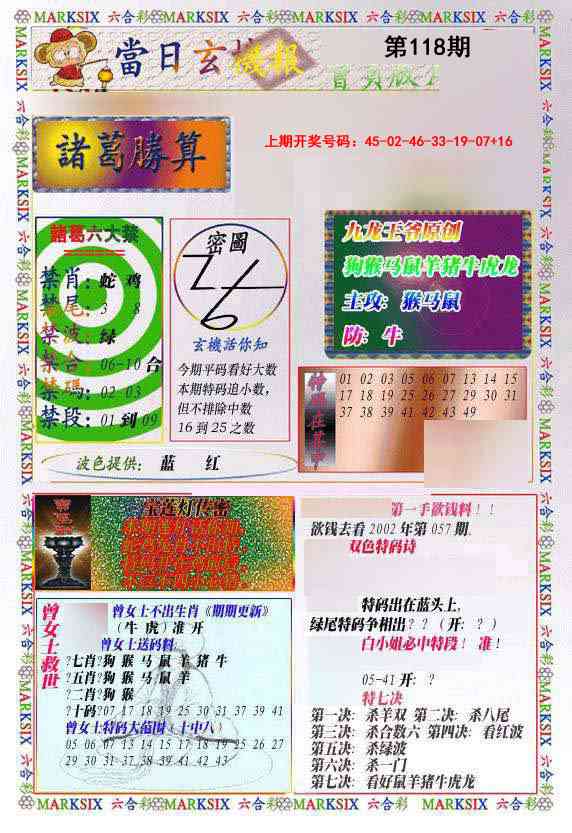 MARKSIX 六合彩 MARKSIX 六合彩 MARKSIX 六合彩 MARKSIX 六合彩
當日玄機報
第118期
諸葛勝算
上期开奖号码：45-02-46-33-19-07+16
諸葛六大禁
禁肖：蛇 鸡
禁尾：3 8
禁波：绿
禁合：06-10 合
禁碼：02-03
禁段：01 到 09
密圖
玄機活你知
今期平码看好大数
本期特码追小数，
但不排除中数
16 到 25 之数
九龙王爷原创
狗猴马鼠羊猪牛虎龙
主攻：猴马鼠
防：牛
01 02 03 05 06 07 13 14 15
17 18 19 25 26 27 29 30 31
37 38 39 41 42 43 49
波色提供： 蓝 红
宝莲灯传密
第一手欲钱料！！
欲钱去看 2002 年第 057 期.
双色特码诗
特码出在蓝头上，
绿尾特码争相出？？（开：？）
白小姐必中特段！ 准！
05-41 开：？
特七决
第一决：杀羊双 第二决：杀八尾
第三决：杀合数六 第四决：看红波
第五决：杀绿波
第六决：杀一门
第七决：看好鼠羊猪牛虎龙
曾女士救世
曾女士不出生肖《期期更新》
（牛 虎）准 开
曾女士送码料:
?七肖?狗 猴 马 鼠 羊 猪 牛
?五肖?狗 猴 马 鼠 羊
?二肖?狗 猴
?十码?07 17 18 19 25 30 31 37 39 41
曾女士特码大范围（十中八）
05 06 07 13 14 15 17 18 19 25 26 27
29 30 31 37 38 39 41 42 43
MARKSIX 六合彩 MARKSIX 六合彩 MARKSIX 六合彩 MARKSIX 六合彩